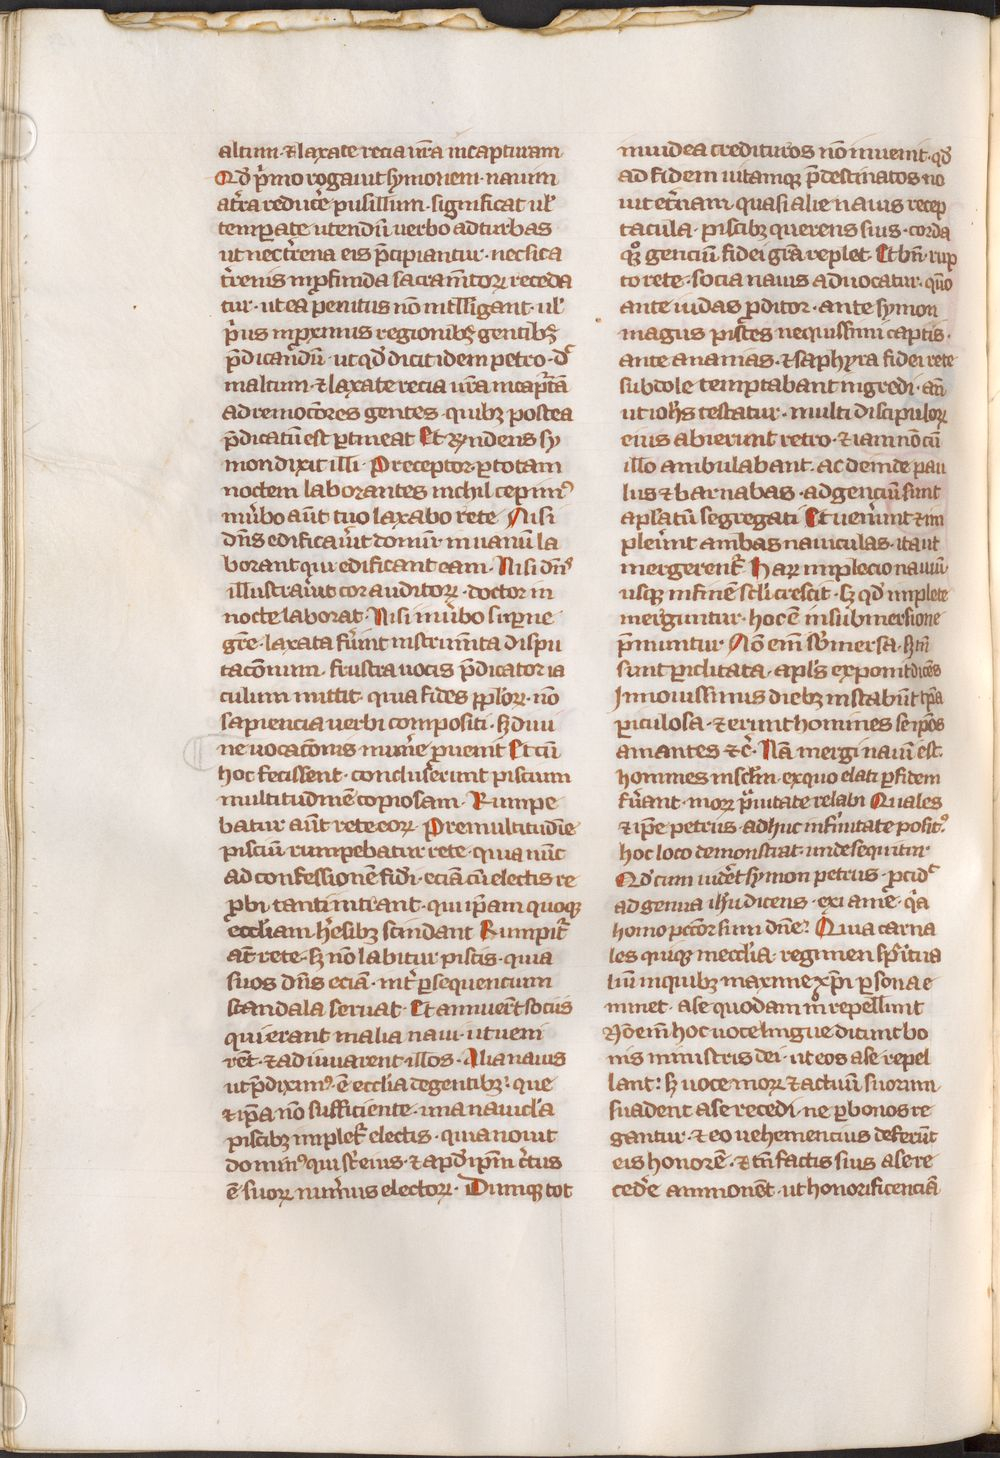 altum·⁊laxate recia ur̄a incapturam·
Qd̕ p̄mo rogauit symonem·nauim
at̄ra reduc̄e pusillum·significat ul̕
temꝑate utendū uerbo ad turbas
ut nec t̄rena eis p̄cipiantur·nec sic a
t̄renis in ꝓfunda sacram̄toꝝ receda
tur·ut ea penitus nōn intlligant·ul̕
p̄us in ꝓximis regionibꝫ gentibꝫ
p̄dicandū·ut qd̕ dicit idem petro·dc̄
in altum·⁊laxate recia ur̄a incapt̄ā
ad remoc̄ores gentes·quibꝫ postea
p̄dicatū est ꝑtineat Et r̄ndens sy
mon dixit illi·Preceptor·ꝑ totam
noctem laborantes nichil cepim᷒
in ūbo aūt tuo laxabo rete Nisi
dn̄s edificau̕it domū·in uanū la
borant qui edificant eam·Nisi dn̄s
illustrau̕it cor auditoꝝ·doctor in
nocte laborat·Nisi in ūbo suꝑne
gr̄e·laxata fu̕int instrum̄ta dispu
tac̄onum·frustra uocis p̄dicator ia
culum mittit·quia fides ꝓploꝝ·nō
sapiencia uerbi compositi·sꝫ diui
ne uocac̄onis mun̄e ꝓuenit Et cū
hoc fecissent·concluserunt piscium
multitudinē copiosam·Rumpe
batur aūt rete eoꝝ·Pre multitudīe
pisciū rumpebatur rete·quia nūc
ad confessionē fidī·eciā cū electis re
ꝓbi·tanti intrant·qui ip̄am quoqꝫ
eccl̄iam h̄esibꝫ scindant Rumpit̄
at̄ rete·sꝫ nō labitur piscis·quia
suos dn̄s eciā·int̄ ꝑsequencium
scandala seruat·Et annuer̄t socius
qui erant in alia naui·ut ueni
rēt·⁊ad iuuarent illos·Alia nauis
ut p̄dixim᷒·ē ecclīa de gentibꝫ·que
⁊ip̄a nō sufficiente·una nauicl̄a
piscibꝫ implet̄ electis·quia nouit
domin᷒ qui s̄t eius·⁊apd̕ ip̄m c̄tus
ē suoꝝ num̄us electoꝝ·Dumqꝫ tot
in iudea credituros nō inuenit·qd̕
ad fidem uitamqꝫ p̄destinatos no
uit et̄nam·quasi alie nauis recep
tacula·piscibꝫ querens suis·corda
qꝫ genciū fidei gr̄a replet·Et bn̄·rup
to rete·socia nauis aduocatur·quō
ante iudas ꝓditor·ante symon
magus pisces nequissimi captis·
ante ananias·⁊saphyra fidei rete
subdole temptabant ingredi·ac̄
ut ioh̄s testatur·multi discipuloꝝ
eius abierunt retro·⁊iam non cū
illo ambulabant·ac deinde pau
lus ⁊ barnabas·ad genciū sunt
aplātū segregati Et uen̄unt ⁊im
pleūnt ambas nauiculas·ita ut
mergerent̄·Haꝝ implecio nauiū·
usqꝫ in finē sc̄li crescit·sꝫ qd̕ implete
merguntur·hoc ē in submersione
p̄muntur·Nō em̄ sb̄mersa·sꝫ tn̄
sunt ꝑiclitata·apl̄s exponit dicēs
In nouissimis diebꝫ instabūt tꝑa
ꝑiculosa·⁊erunt homines se ipōs
amantes ⁊c̄·Nā mergi nauiū est·
homines in scl̄m·ex quo elati ꝑ fidem
fu̕ant·moꝝ ꝓuitate relabi Quales
⁊ip̄e petrus·adhuc infirmitate posit᷒
hoc loco demonstrat·unde sequitur·
Qd̕ cum uid̄et symon petrus·ꝓcidᵗ
ad genua ih̄u dicens·exi a me·q̄a
homo pc̄cor sum dn̄e·Quia carna
les quiqꝫ in eccl̄ia·regimen sp̄ritua
liū in quibꝫ maxime xp̄i ꝑsona e
minet·a se quodam mō repellunt
Nō em̄ hoc uoce lingue dicunt bo
nis ministris dei·ut eos a se repel
lant·sꝫ uoce moꝝ ⁊actuū suorum·
suadent a se recedi·ne ꝑ bonos re
gantur·⁊eo uehemencius deferūt
eis honorē·⁊tn̄ factis suis a se re
ced̄e ammonēt·ut honorificenciā